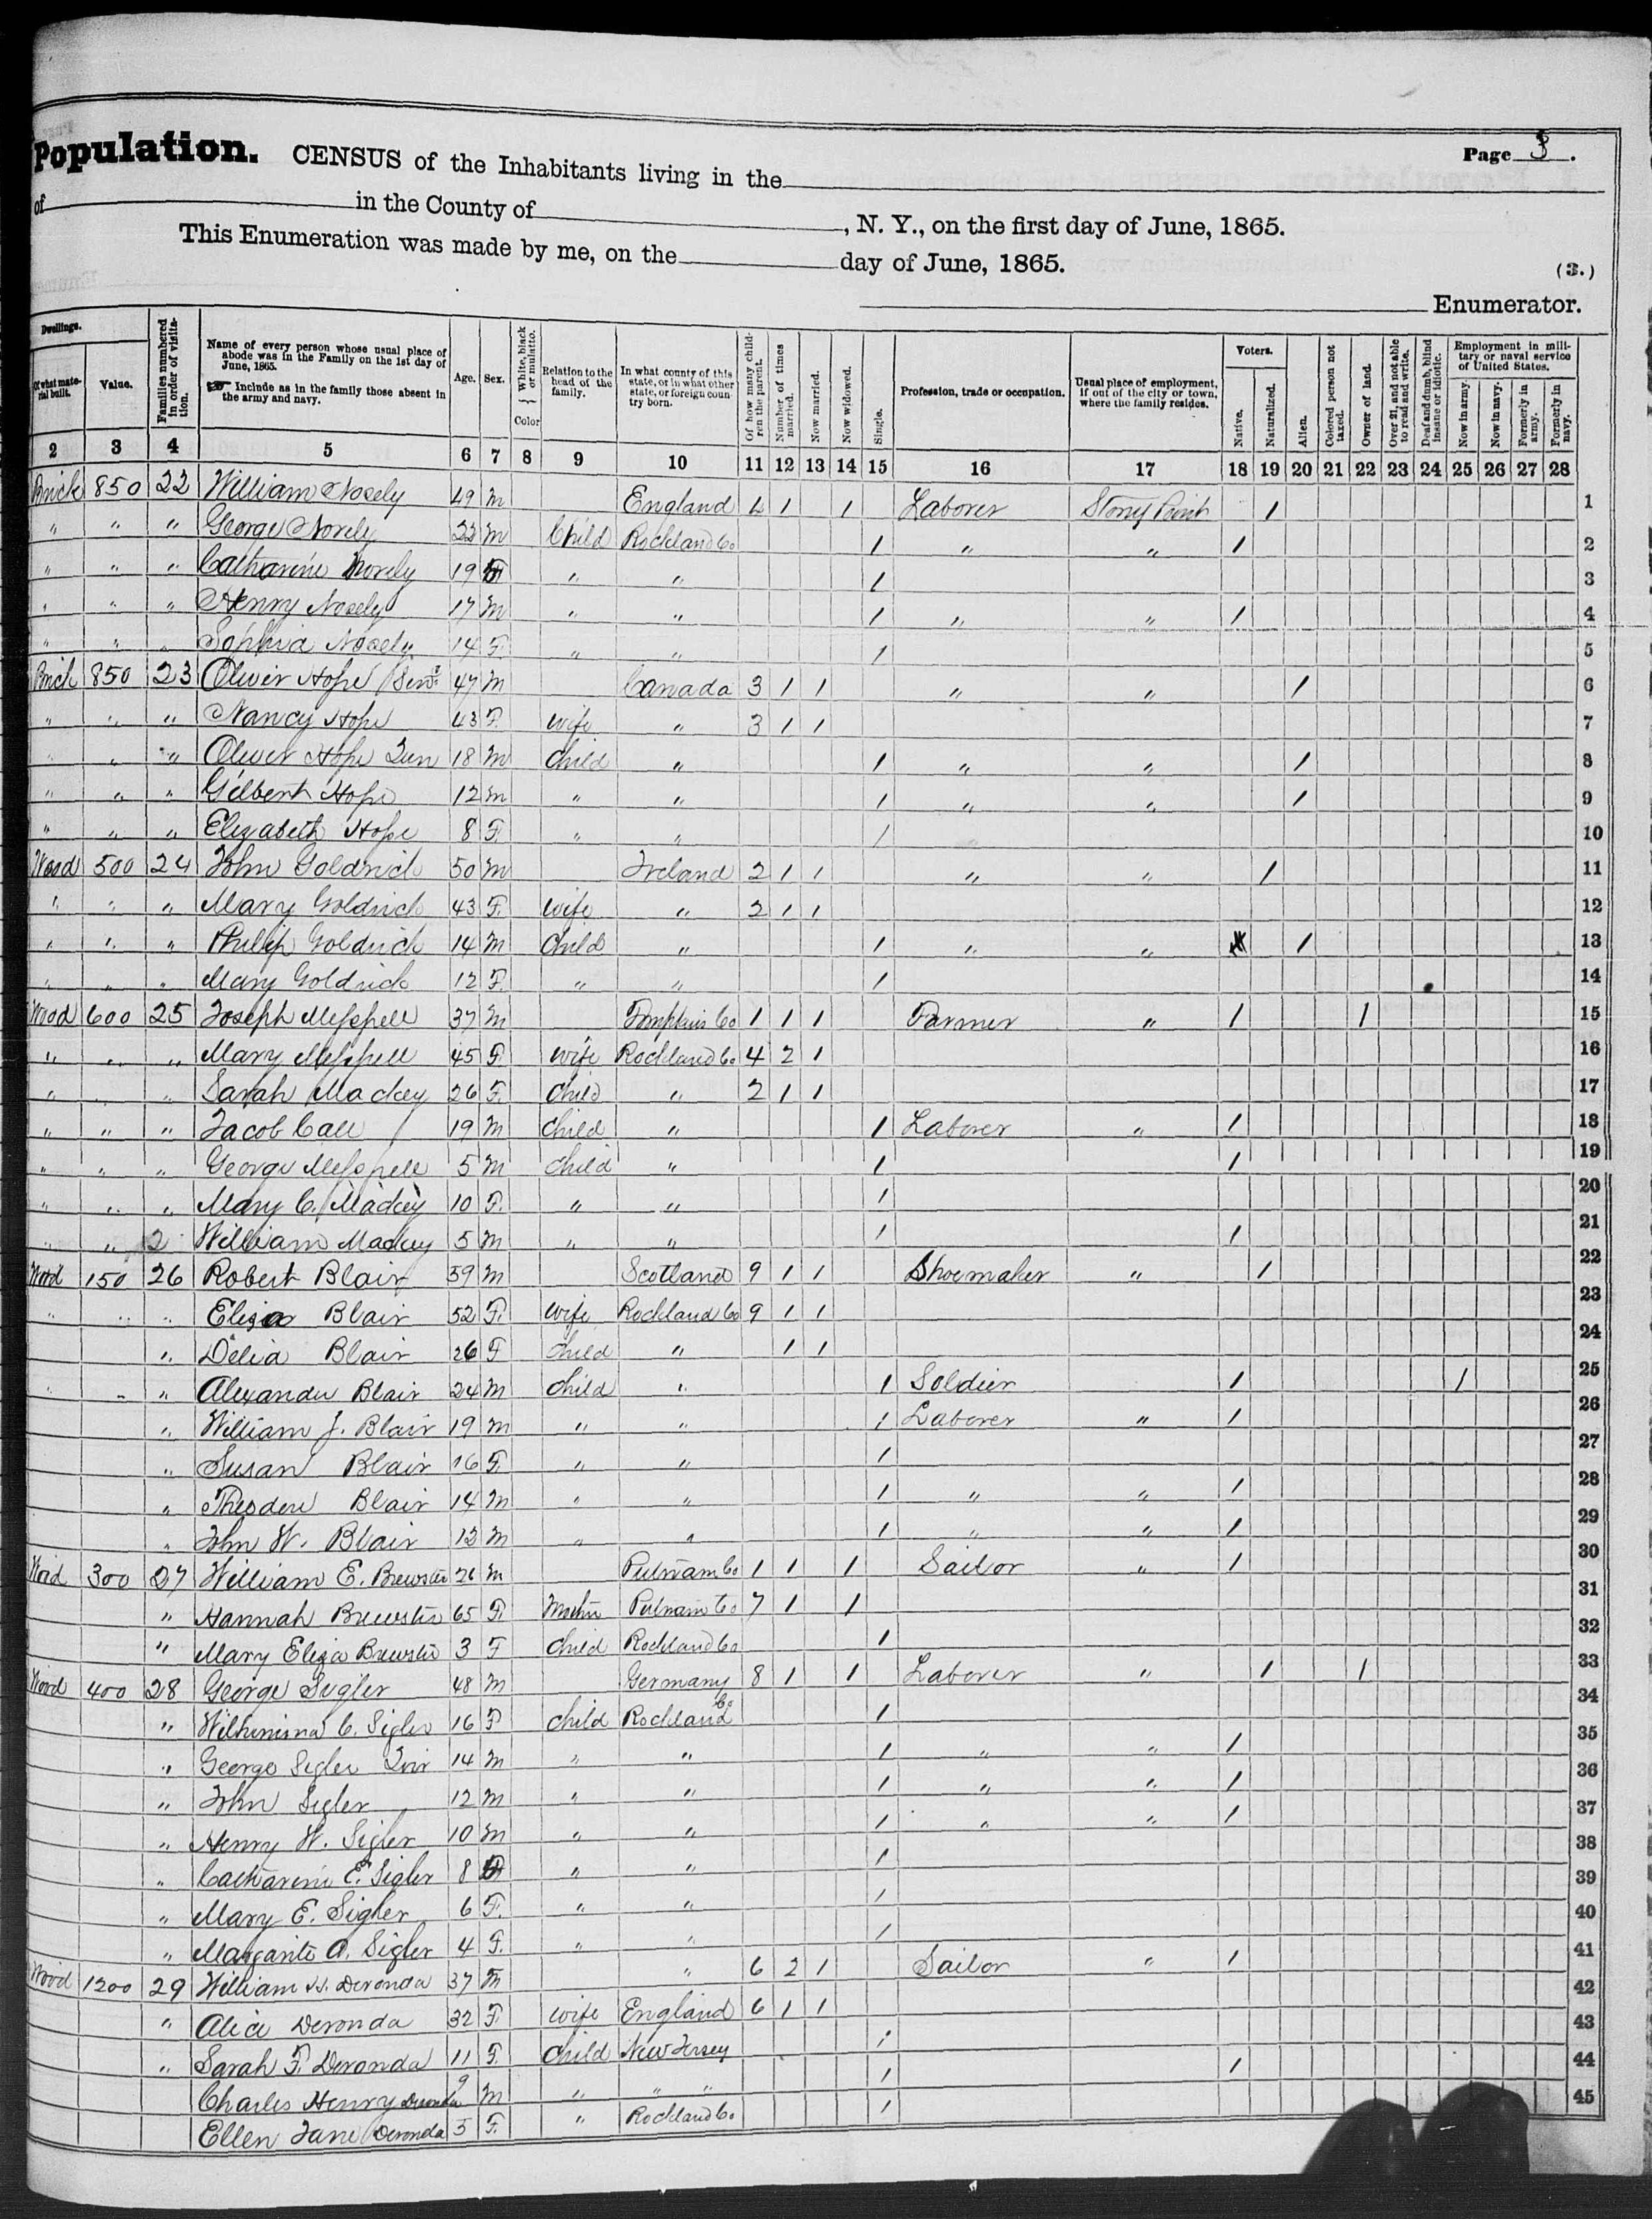 Population. CENSUS of the Inhabitants living in the Page 3.
of in the County of , N. Y., on the first day of June, 1865.
This Enumeration was made by me, on the day of June, 1865.
(3.)
Enumerator.
Dwellings. Of what material built. Value. Families numbered in order of visitation. Name of every person whose usual place of abode was in the Family on the 1st day of June, 1865. Include as in the family those absent in the army and navy. Age. Sex. White, black or mulatto. Color Relation to the head of the family. In what county of this state, or in what other state, or foreign country born. Of how many children the parent. Number of times married. Now married. Now widowed. Single. Profession, trade or occupation. Usual place of employment, if out of the city or town, where the family resides. Voters. Native. Naturalized. Alien. Colored person not taxed. Owner of land. Over 21, and not able to read and write. Deaf and dumb, blind insane or idiotic. Employment in military or naval service of United States. Now in army. Now in navy. Formerly in army. Formerly in navy.
2 3 4 5 6 7 8 9 10 11 12 13 14 15 16 17 18 19 20 21 22 23 24 25 26 27 28
Brick 850 22 William 49 M England 4 1 1 Laborer Stony Point 1 1
" " " George 22 M Child Rockland Co 1 " " 1 2
" " " Catharine 19 F " " 1 3
" " " Henry 17 M " " 1 " " 1 4
" " " Sophia 14 F. " " 1 5
Brick 850 23 Oliver Hope Senr. 47 M Canada 3 1 1 " " 1 6
" " " Nancy Hope 43 F. wife " 3 1 1 7
" " " Oliver Hope Jun 18 M Child " 1 " " 1 8
" " " Gilbert Hope 12 M " " 1 " " 1 9
" " " Elizabeth Hope 8 F. " " 1 10
Wood 500 24 John Goldrich 50 M Ireland 2 1 1 " " 1 11
" " " Mary Goldrich 43 F. wife " 2 1 1 12
" " " Philip Goldrich 14 M Child " 1 " " 1 13
" " " Mary Goldrich 12 F. " " 1 14
Wood 600 25 Joseph 37 M Tompkins Co 1 1 1 Farmer " 1 1 15
" " " Mary 45 F. wife Rockland Co 4 2 1 16
" " " Sarah Mackey 26 F. Child " 2 1 1 17
" " " Jacob Call 19 M Child " 1 Laborer " 1 18
" " " George 5 M Child " 1 1 19
" " " Mary C. Mackey 10 F. " " 1 20
" " William Mackey 5 M " " 1 1 21
Wood 150 26 Robert Blair 59 M Scotland 9 1 1 Shoemaker " 1 22
" " " Eliza Blair 52 F. wife Rockland Co 9 1 1 23
" Delia Blair 26 F Child " 1 1 24
" " " Alexander Blair 24 M Child " 1 Soldier 1 1 25
" William J. Blair 19 M " " 1 Laborer " 1 26
" Susan Blair 16 F. " " 1 27
" Theodore Blair 14 M " " 1 " " 1 28
" John W. Blair 12 M " " 1 " " 1 29
Wood 300 27 William E. Brewster 26 M Putnam Co 1 1 1 Sailor " 1 30
" Hannah Brewster 65 F. Mother Putnam Co 7 1 1 31
" Mary Eliza Brewster 3 F Child Rockland Co 1 32
Wood 400 28 George Sigler 48 M Germany 8 1 1 Laborer " 1 1 33
" Wilhimina C. Sigler 16 F Child Rockland Co 1 34
" George Sigler Jnir 14 M " " 1 " " 1 35
" John Sigler 12 M " " 1 " " 1 36
" Henry W. Sigler 10 M " " 1 " " 1 37
" Catharine E. Sigler 8 F " " 1 38
" Mary E. Sigler 6 F. " " 1 39
" Margarite A. Sigler 4 F. " " 1 40
Wood 1200 29 William H. Deronda 37 M " 6 2 1 Sailor " 1 41
" Alice Deronda 32 F wife England 6 1 1 42
" Sarah F. Deronda 11 F. Child New Jersey 1 43
Charles Henry Deronda 9 M " " " 1 1 44
Ellen Jane Deronda 5 F. " Rockland Co. 1 45